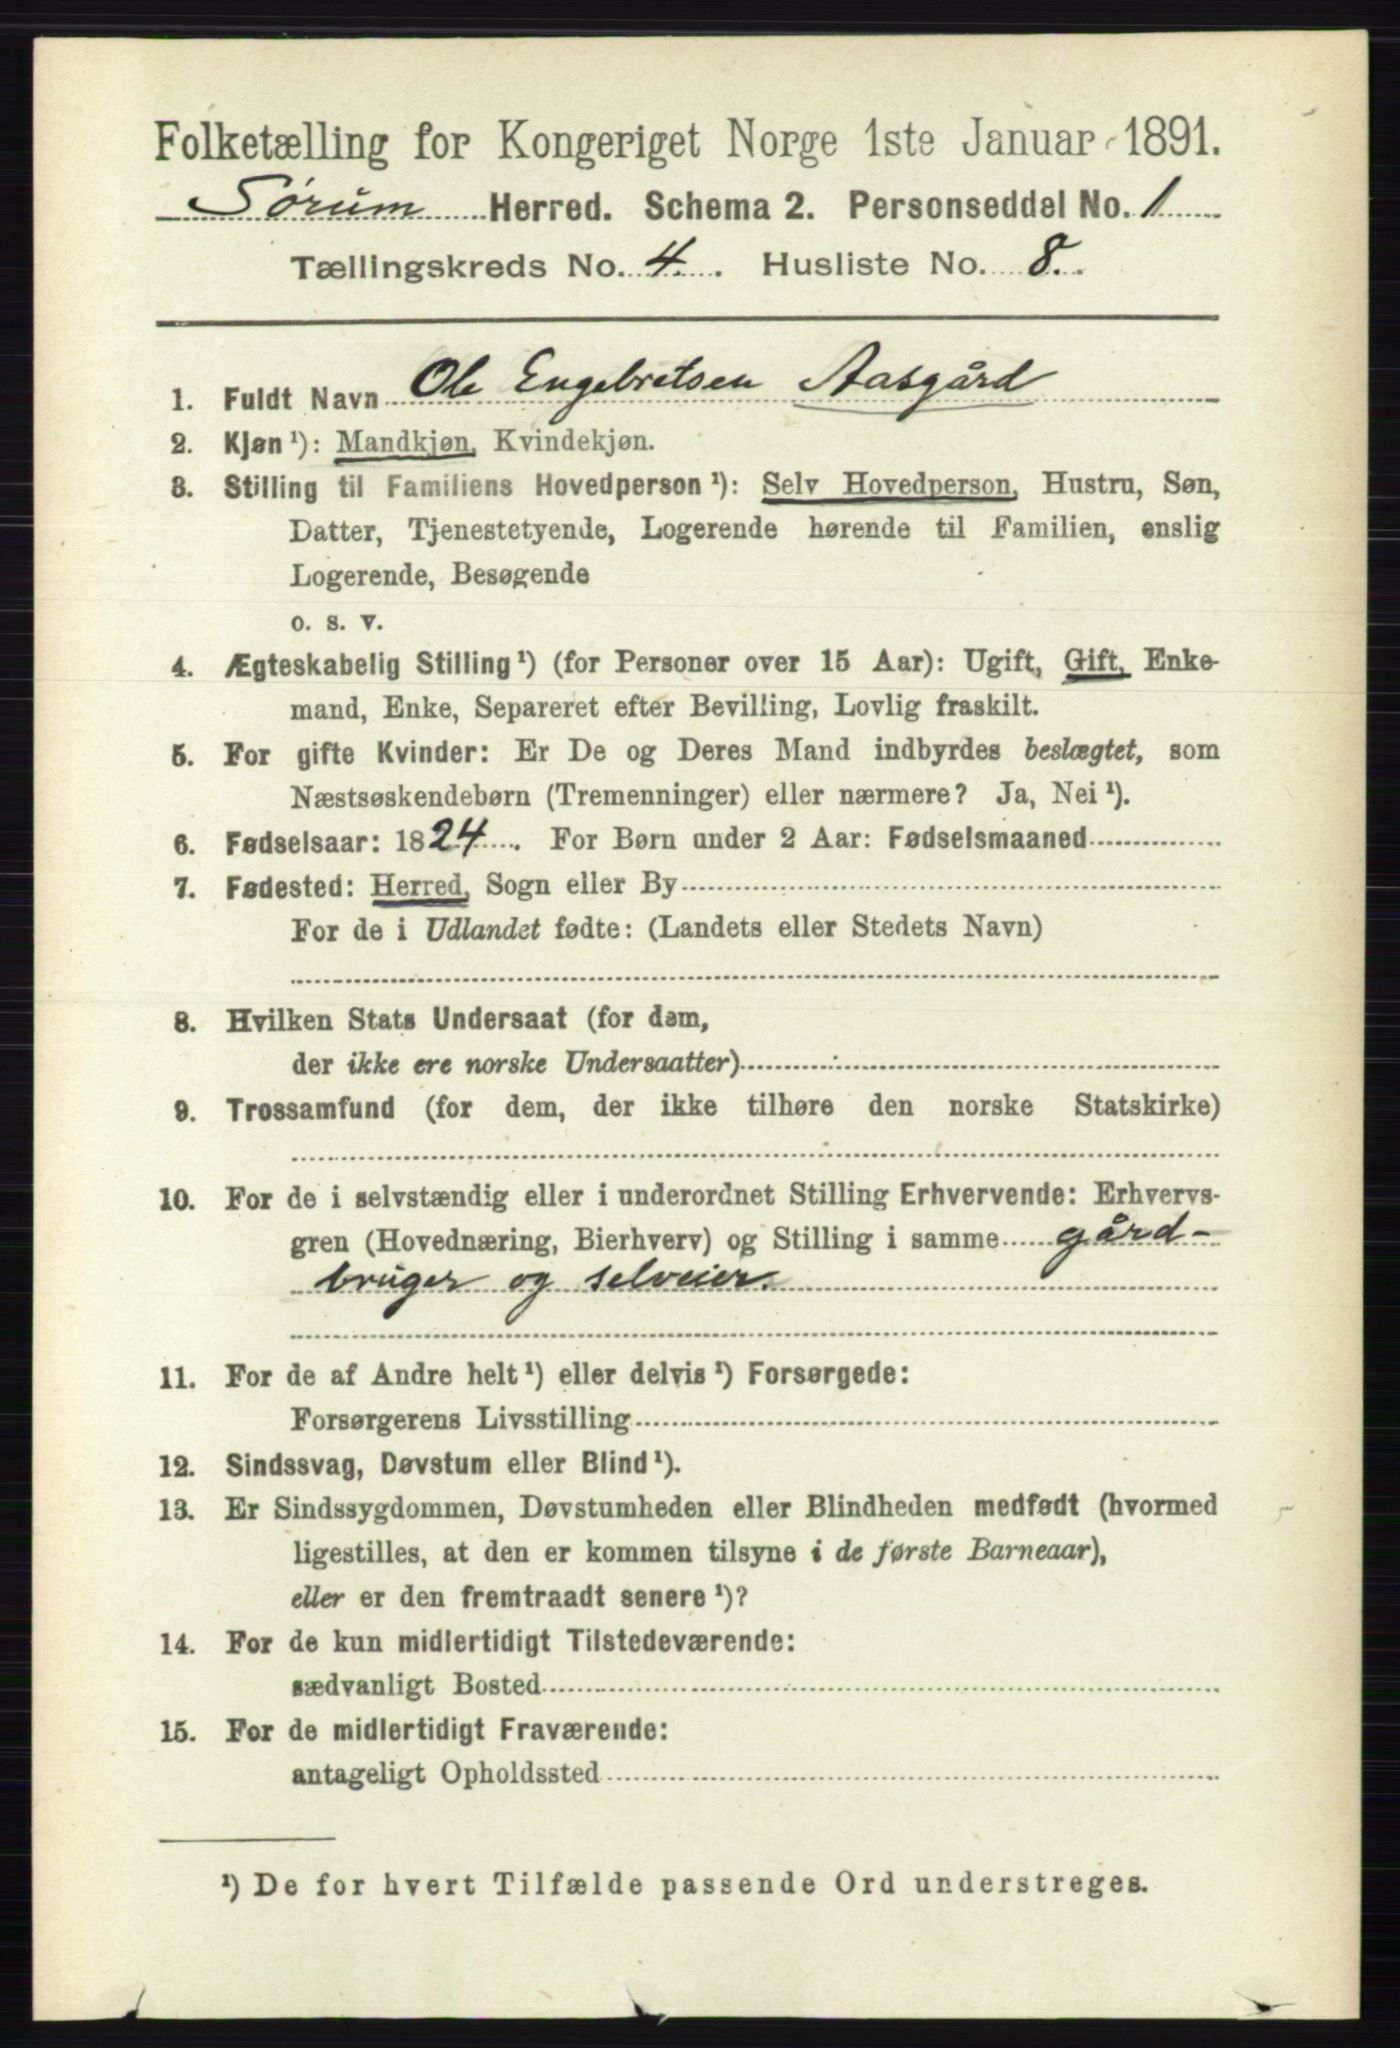 Folketælling for Kongeriget Norge 1ste Januar 1891.
Sørum Herred. Schema 2. Personseddel No. 1
Tællingskreds No. 4. Husliste No. 8.
1. Fuldt Navn Ole Engebretsen Aasgård
2. Kjøn¹): Mandkjøn, Kvindekjøn.
3. Stilling til Familiens Hovedperson¹): Selv Hovedperson, Hustru, Søn,
Datter, Tjenestetyende, Logerende hørende til Familien, enslig
Logerende, Besøgende
o. s. v.
4. Ægteskabelig Stilling¹) (for Personer over 15 Aar): Ugift, Gift, Enke-
mand, Enke, Separeret efter Bevilling, Lovlig fraskilt.
5. For gifte Kvinder: Er De og Deres Mand indbyrdes beslægtet, som
Næstsøskendebørn (Tremenninger) eller nærmere? Ja, Nei¹).
6. Fødselsaar: 1824. For Børn under 2 Aar: Fødselsmaaned
7. Fødested: Herred, Sogn eller By
For de i Udlandet fødte: (Landets eller Stedets Navn)
8. Hvilken Stats Undersaat (for dem,
der ikke ere norske Undersaatter)
9. Trossamfund (for dem, der ikke tilhøre den norske Statskirke)
10. For de i selvstændig eller i underordnet Stilling Erhvervende: Erhvervs-
gren (Hovednæring, Bierhverv) og Stilling i samme gård-
bruger og selveier.
11. For de af Andre helt¹) eller delvis¹) Forsørgede:
Forsørgerens Livsstilling
12. Sindssvag, Døvstum eller Blind¹).
13. Er Sindssygdommen, Døvstumheden eller Blindheden medfødt (hvormed
ligestilles, at den er kommen tilsyne i de første Barneaar),
eller er den fremtraadt senere¹)?
14. For de kun midlertidigt Tilstedeværende:
sædvanligt Bosted
15. For de midlertidigt Fraværende:
antageligt Opholdssted
¹) De for hvert Tilfælde passende Ord understreges.